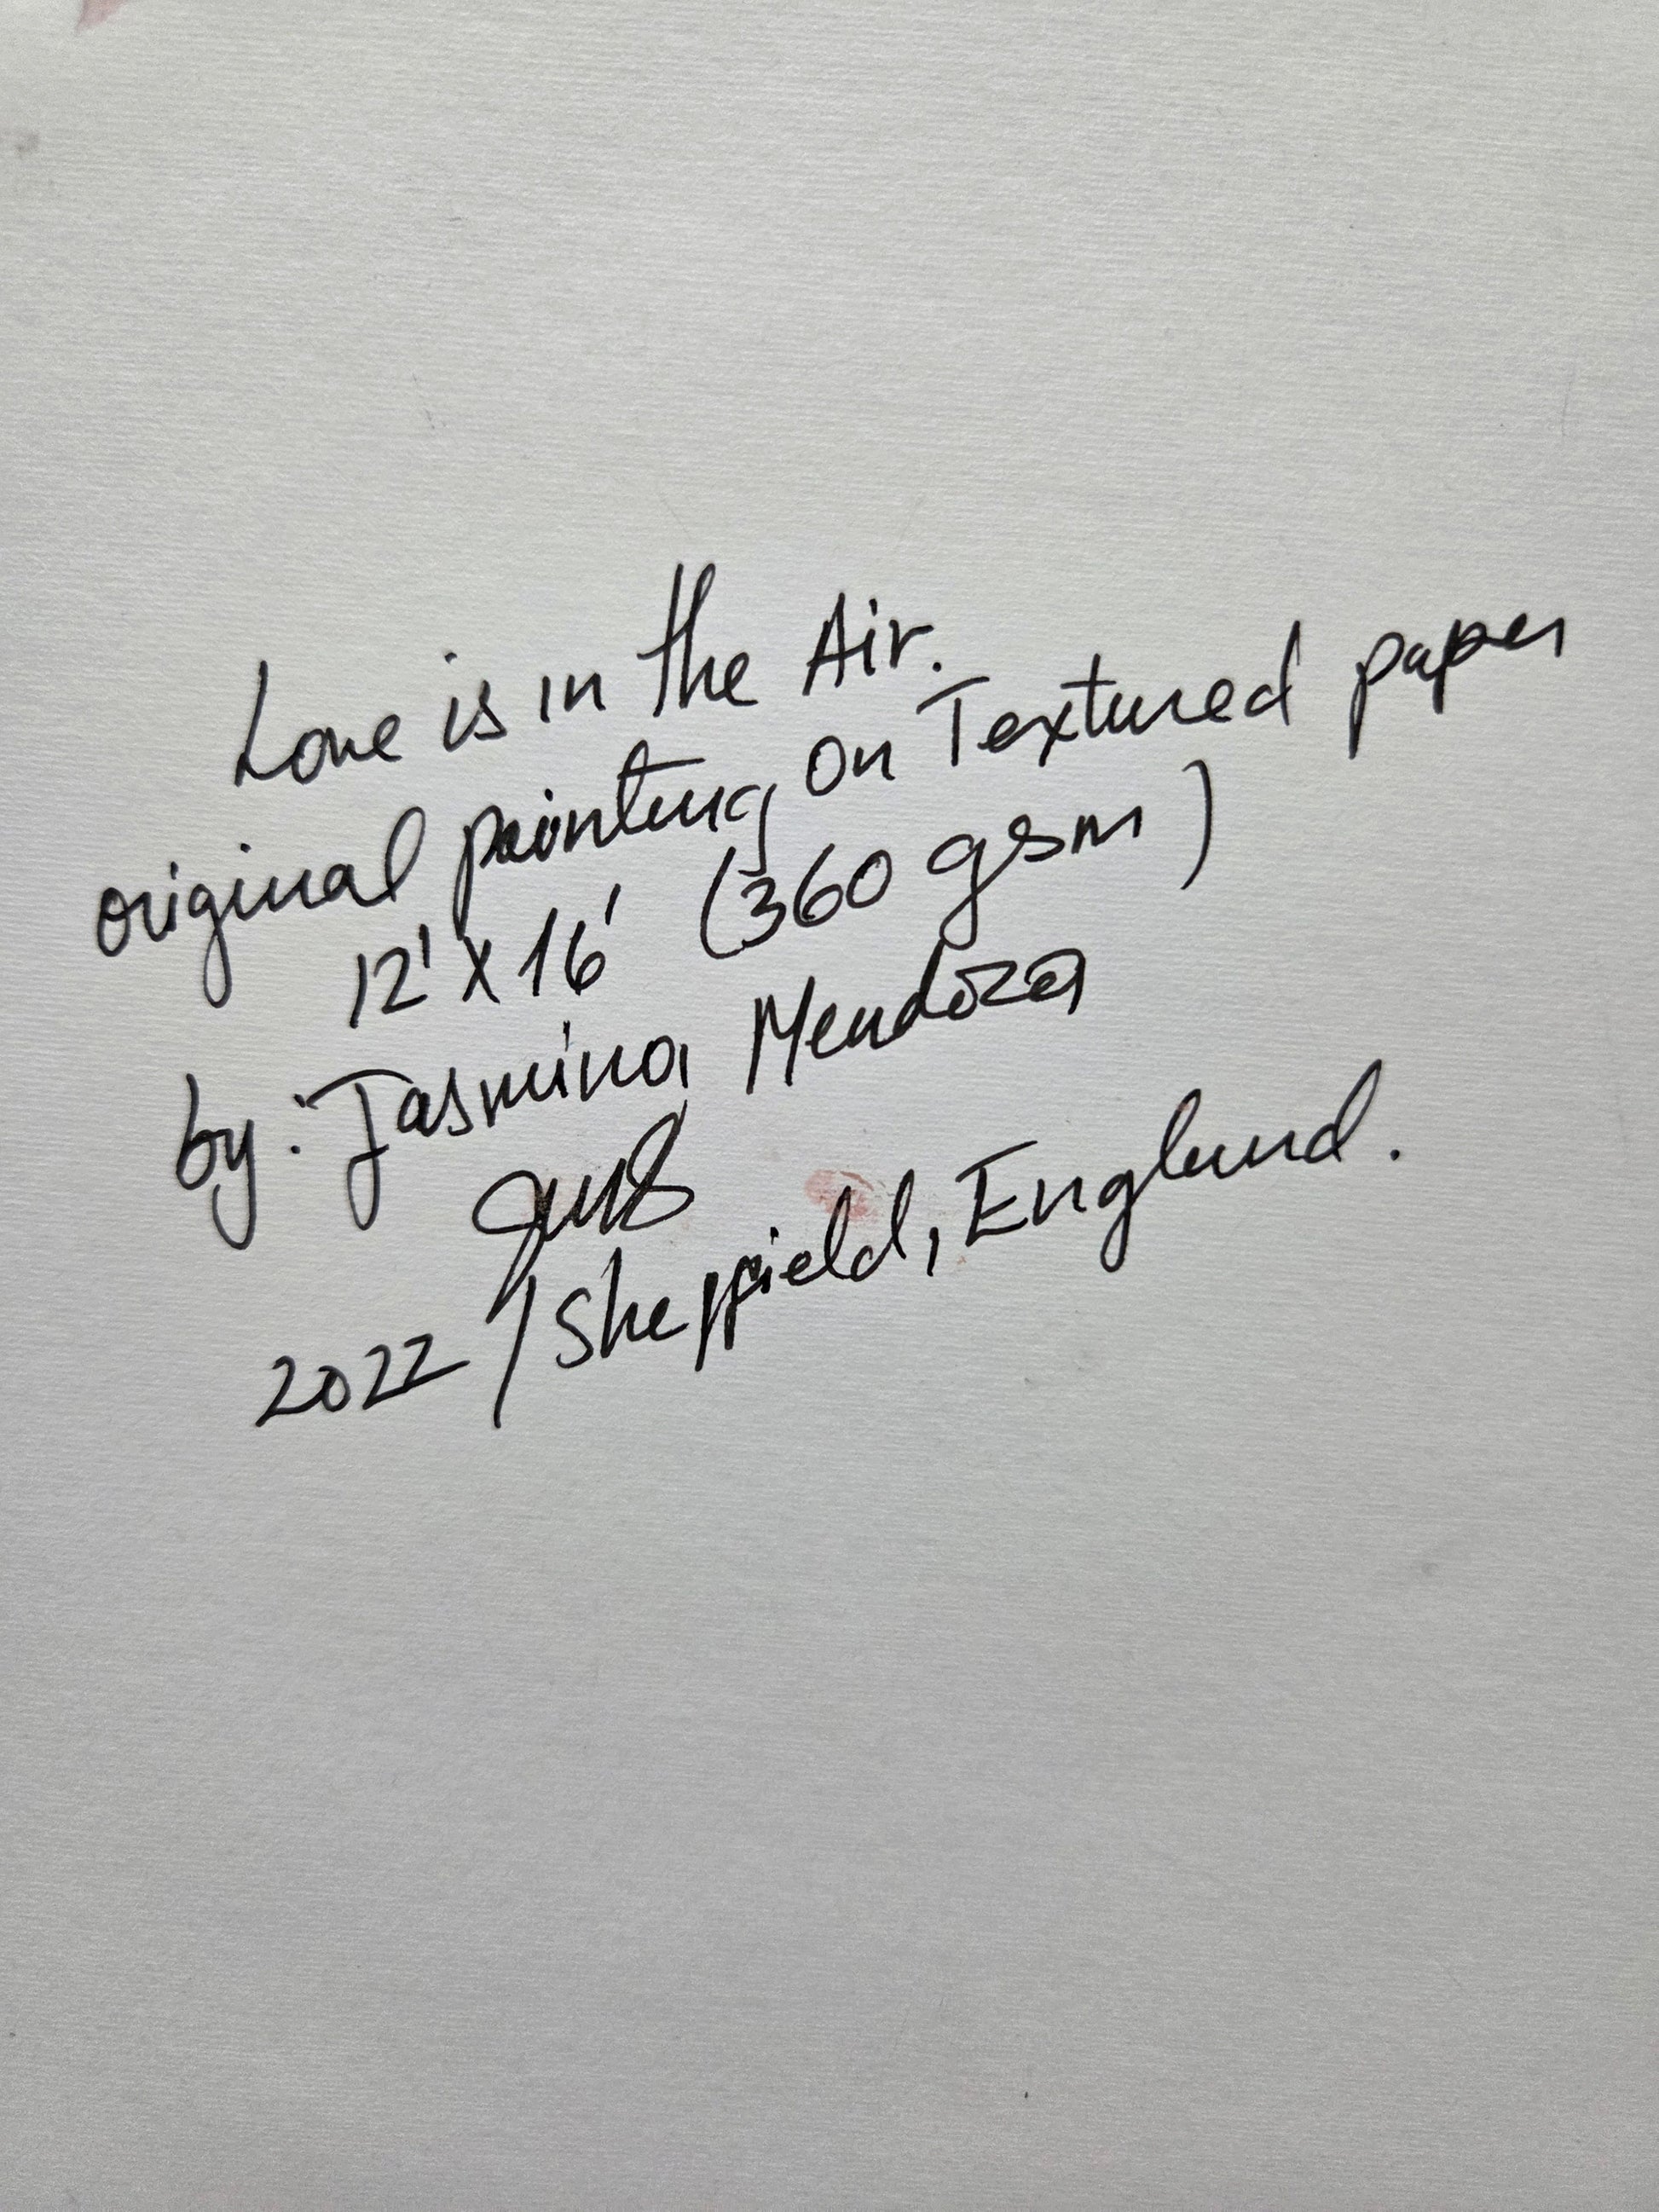 Love is in the Air.
original painting on Textured paper
12' x 16' (360 gsm)
by: Jasmina Mendoza
2022 / Sheffield, England.